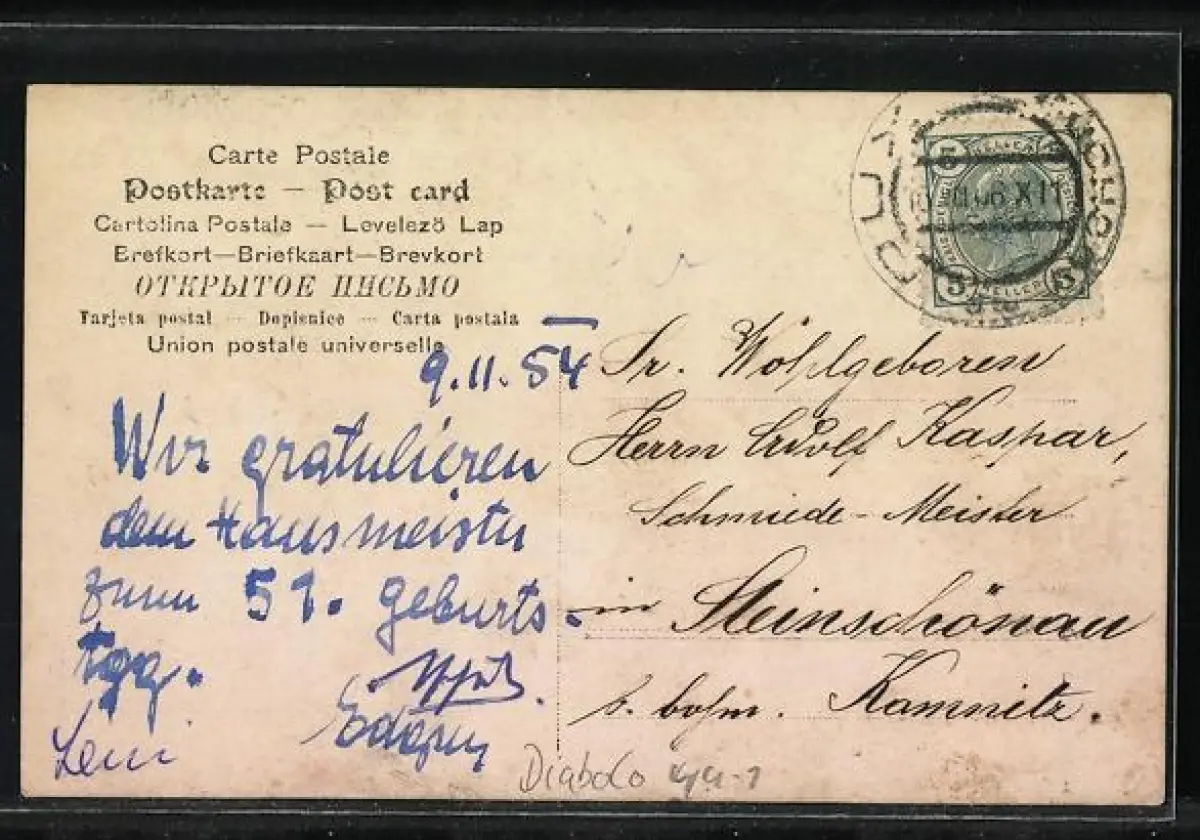 Carte Postale
Postkarte — Post card
Cartolina Postale — Levelező Lap
Brefkort—Briefkaart—Brevkort
ОТКРЫТОЕ ПИСЬМО
Tarjeta postal — Dopisnice — Carta postala
Union postale universelle
9.11.54
Wir gratulieren
dem Hausmeister
zum 51. Geburts-
tag.
Leni
Sr. Wohlgeboren
Herrn Adolf Kaspar,
Schmiede-Meister
in Steinschönau
b. böhm. Kamnitz.
Diabolo
5 HELLER 5
06 XII